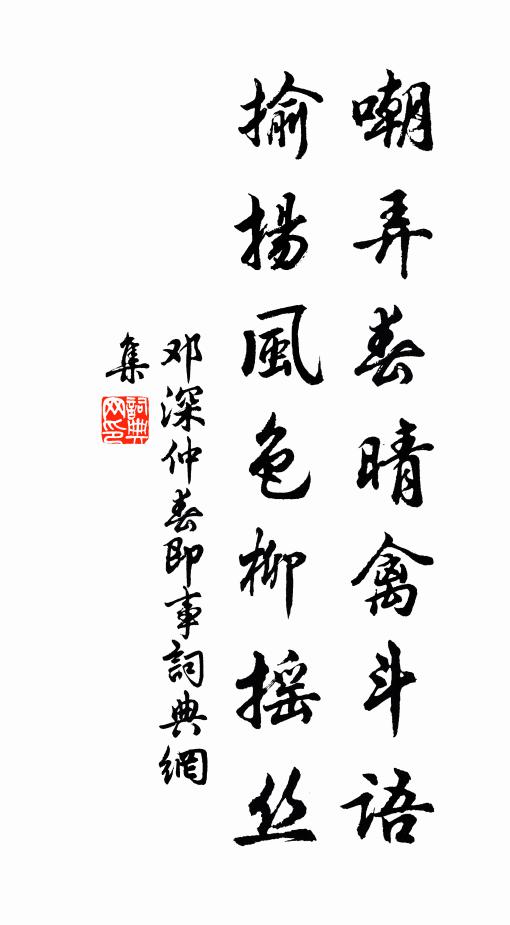 嘲弄春晴禽斗语
揄扬風色柳摇丝
邓深仲春即事詞典網
集
詞典
网印